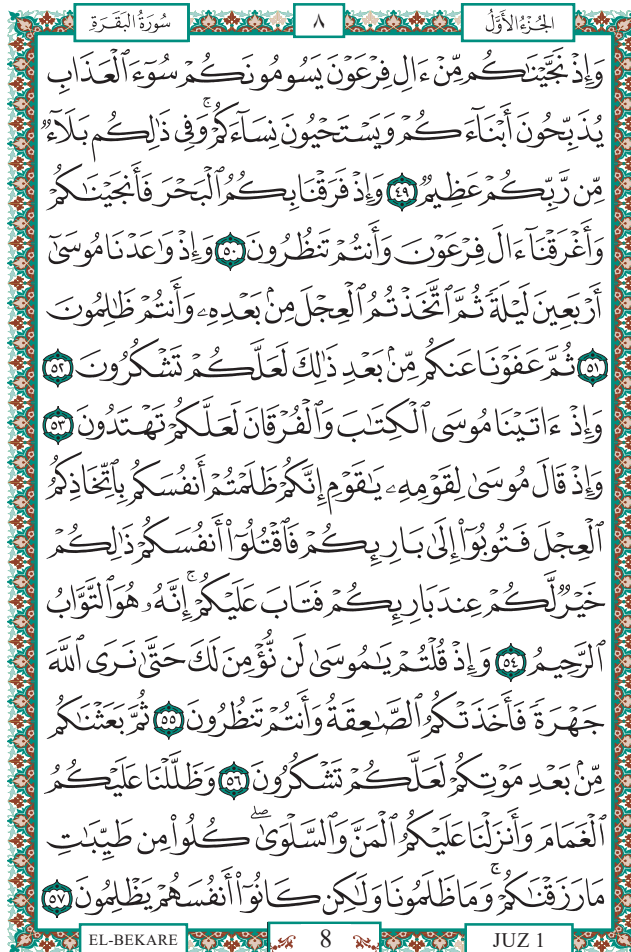 الجُزْءُ الأَوَّلُ
٨
سُورَةُ البَقَرَةِ
وَإِذْ نَجَّيْنَٰكُم مِّنْ ءَالِ فِرْعَوْنَ يَسُومُونَكُمْ سُوٓءَ ٱلْعَذَابِ
يُذَبِّحُونَ أَبْنَآءَكُمْ وَيَسْتَحْيُونَ نِسَآءَكُمْ ۚ وَفِى ذَٰلِكُم بَلَآءٌ
مِّن رَّبِّكُمْ عَظِيمٌ ٤٩ وَإِذْ فَرَقْنَا بِكُمُ ٱلْبَحْرَ فَأَنجَيْنَٰكُمْ
وَأَغْرَقْنَآ ءَالَ فِرْعَوْنَ وَأَنتُمْ تَنظُرُونَ ٥٠ وَإِذْ وَٰعَدْنَا مُوسَىٰٓ
أَرْبَعِينَ لَيْلَةً ثُمَّ ٱتَّخَذْتُمُ ٱلْعِجْلَ مِنۢ بَعْدِهِۦ وَأَنتُمْ ظَٰلِمُونَ
٥١ ثُمَّ عَفَوْنَا عَنكُم مِّنۢ بَعْدِ ذَٰلِكَ لَعَلَّكُمْ تَشْكُرُونَ ٥٢
وَإِذْ ءَاتَيْنَا مُوسَى ٱلْكِتَٰبَ وَٱلْفُرْقَانَ لَعَلَّكُمْ تَهْتَدُونَ ٥٣
وَإِذْ قَالَ مُوسَىٰ لِقَوْمِهِۦ يَٰقَوْمِ إِنَّكُمْ ظَلَمْتُمْ أَنفُسَكُم بِٱتِّخَاذِكُمُ
ٱلْعِجْلَ فَتُوبُوٓا۟ إِلَىٰ بَارِئِكُمْ فَٱقْتُلُوٓا۟ أَنفُسَكُمْ ذَٰلِكُمْ
خَيْرٌ لَّكُمْ عِندَ بَارِئِكُمْ فَتَابَ عَلَيْكُمْ ۚ إِنَّهُۥ هُوَ ٱلتَّوَّابُ
ٱلرَّحِيمُ ٥٤ وَإِذْ قُلْتُمْ يَٰمُوسَىٰ لَن نُّؤْمِنَ لَكَ حَتَّىٰ نَرَى ٱللَّهَ
جَهْرَةً فَأَخَذَتْكُمُ ٱلصَّٰعِقَةُ وَأَنتُمْ تَنظُرُونَ ٥٥ ثُمَّ بَعَثْنَٰكُم
مِّنۢ بَعْدِ مَوْتِكُمْ لَعَلَّكُمْ تَشْكُرُونَ ٥٦ وَظَلَّلْنَا عَلَيْكُمُ
ٱلْغَمَامَ وَأَنزَلْنَا عَلَيْكُمُ ٱلْمَنَّ وَٱلسَّلْوَىٰ ۖ كُلُوا۟ مِن طَيِّبَٰتِ
مَا رَزَقْنَٰكُمْ ۚ وَمَا ظَلَمُونَا وَلَٰكِن كَانُوٓا۟ أَنفُسَهُمْ يَظْلِمُونَ ٥٧
EL-BEKARE
8
JUZ 1